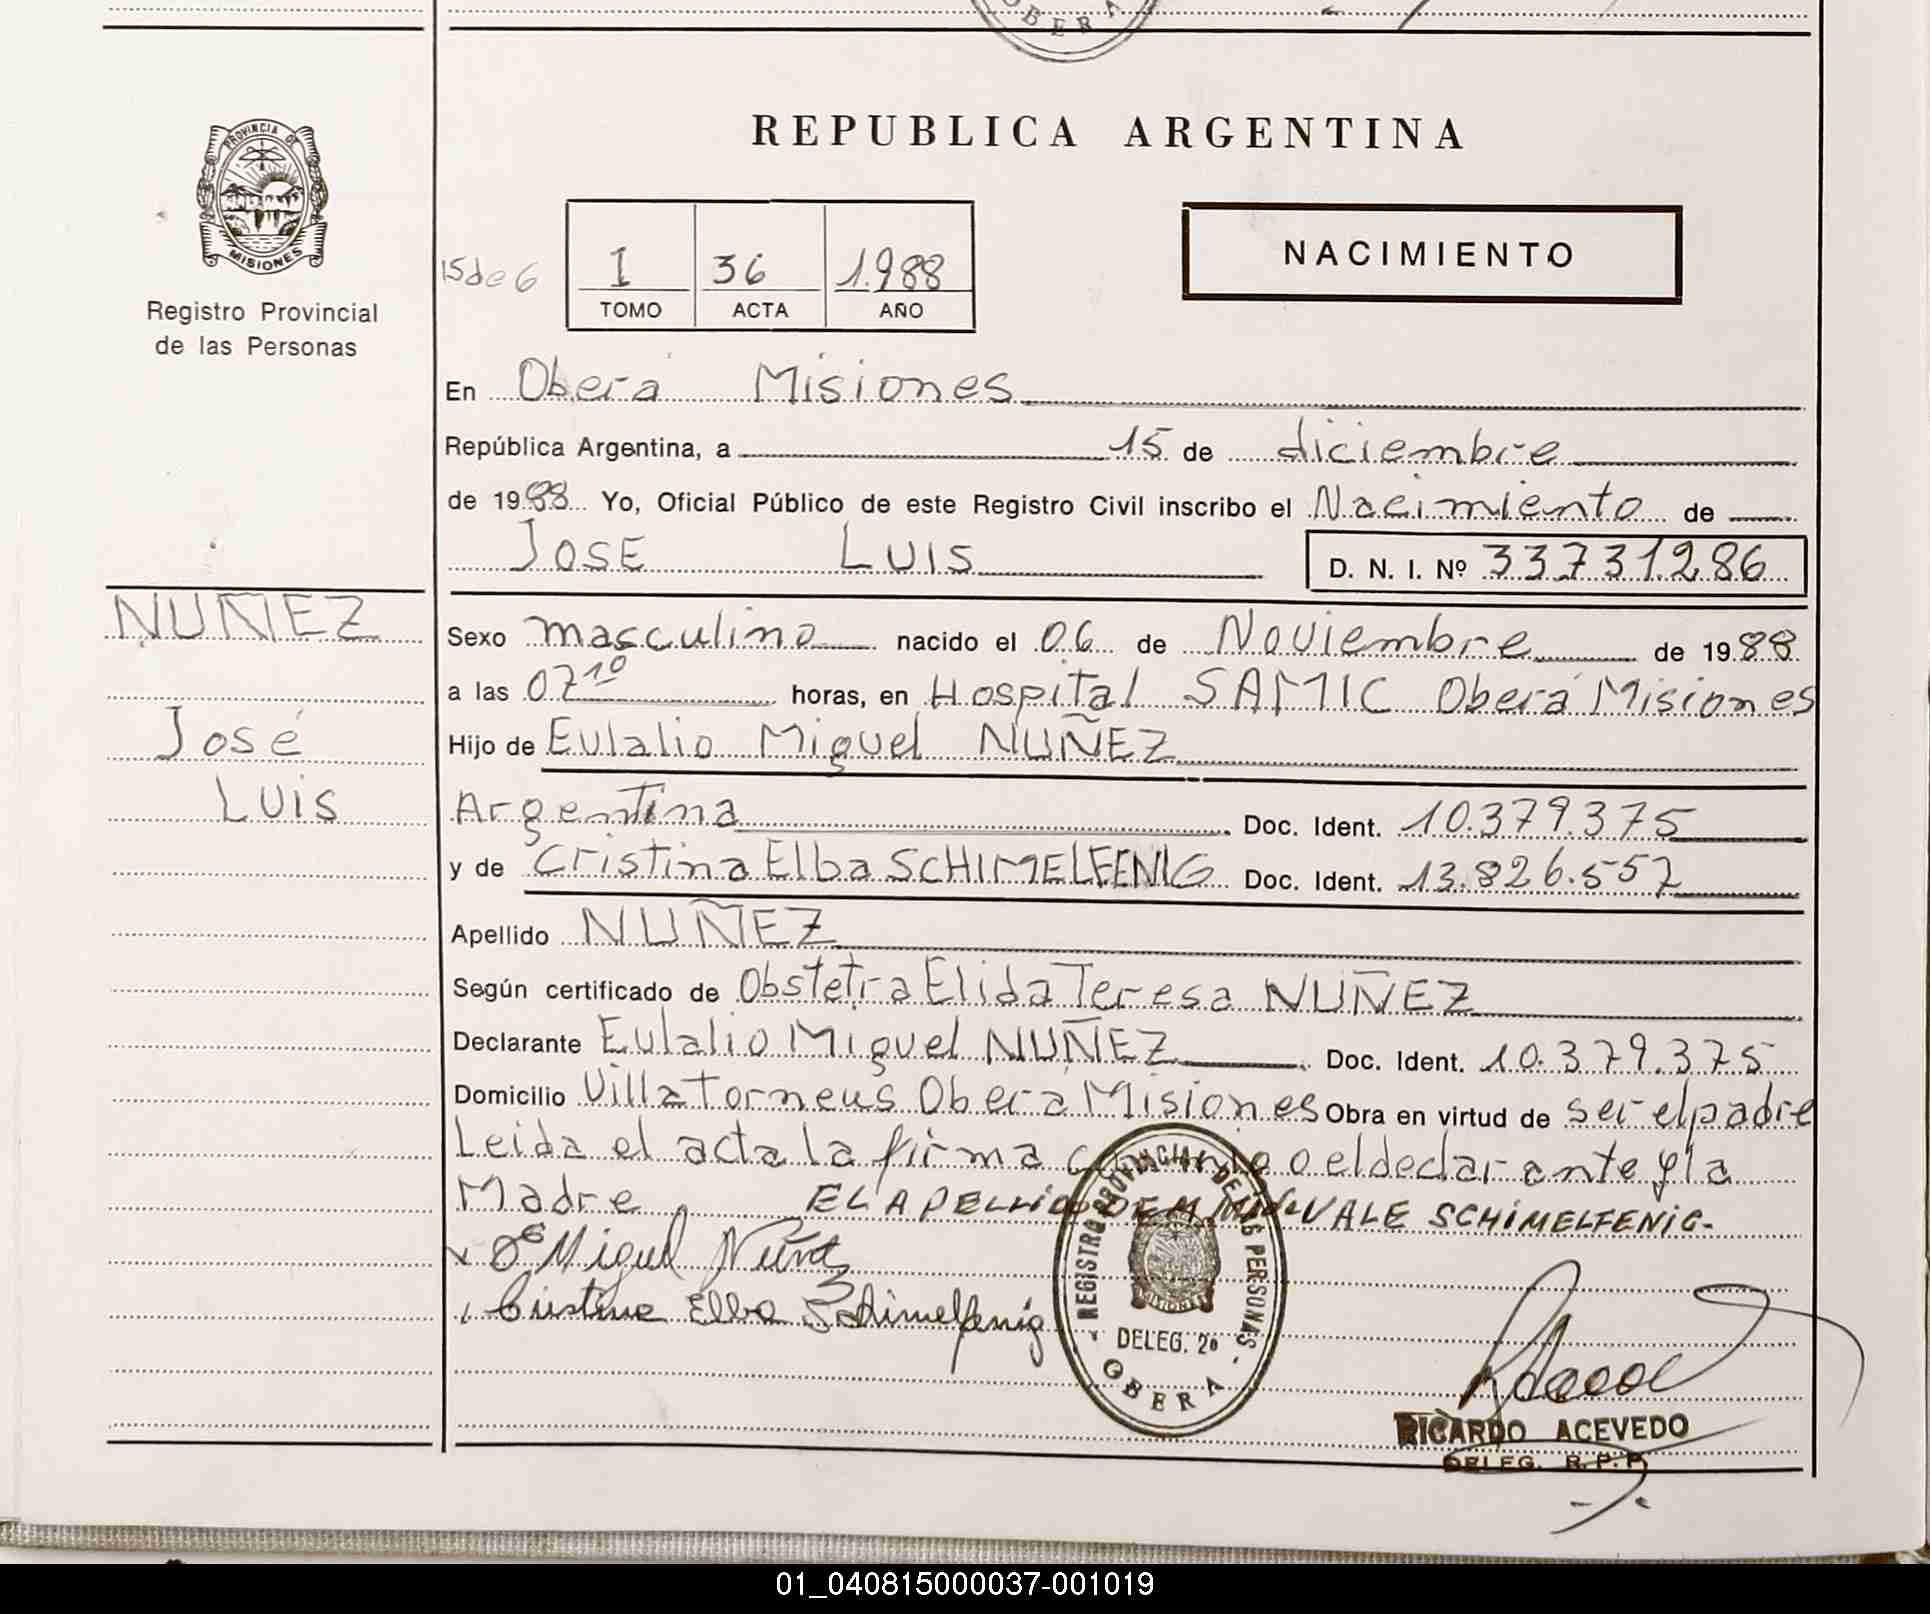 OBERA
PROVINCIA DE
MISIONES
Registro Provincial
de las Personas
REPUBLICA ARGENTINA
15 de 6
I 36 1.988
TOMO ACTA AÑO
NACIMIENTO
En Oberá Misiones
República Argentina, a 15 de diciembre
de 1988 Yo, Oficial Público de este Registro Civil inscribo el Nacimiento de
JOSE LUIS
D. N. I. Nº 33.731.286
NUÑEZ
José
Luis
Sexo masculino nacido el 06 de Noviembre de 1988
a las 07 10 horas, en Hospital SAMIC Oberá Misiones
Hijo de Eulalio Miguel NUÑEZ
Argentina Doc. Ident. 10.379.375
y de Cristina Elba SCHIMELFENIG Doc. Ident. 13.826.557
Apellido NUÑEZ
Según certificado de Obstetra Elida Teresa NUÑEZ
Declarante Eulalio Miguel NUÑEZ Doc. Ident. 10.379.375
Domicilio Villa Torneus Obera Misiones Obra en virtud de ser el padre
Leida el acta la firma conmigo el declarante y la
Madre EL APELLIDO ENMENDADO VALE SCHIMELFENIG.
Miguel Nuñez
Cristina Elba Schimelfenig
REGISTRO PROVINCIAL DE LAS PERSONAS
MISIONES
DELEG. 2º
OBERA
RICARDO ACEVEDO
DELEG. R.P.P.
01_040815000037-001019